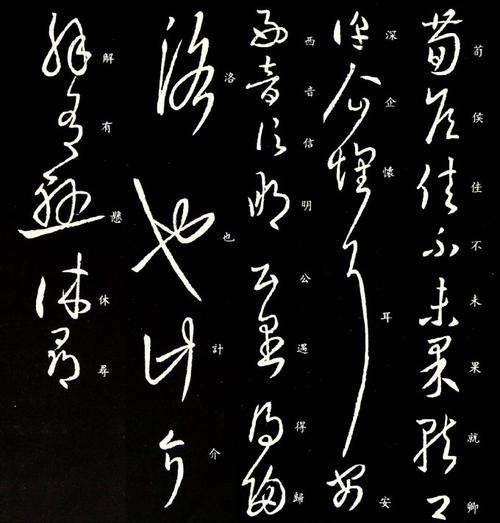 荀侯佳不未果就卿
深企懐耳安
西音信明公遇得歸
洛也計介
解有懸休尋